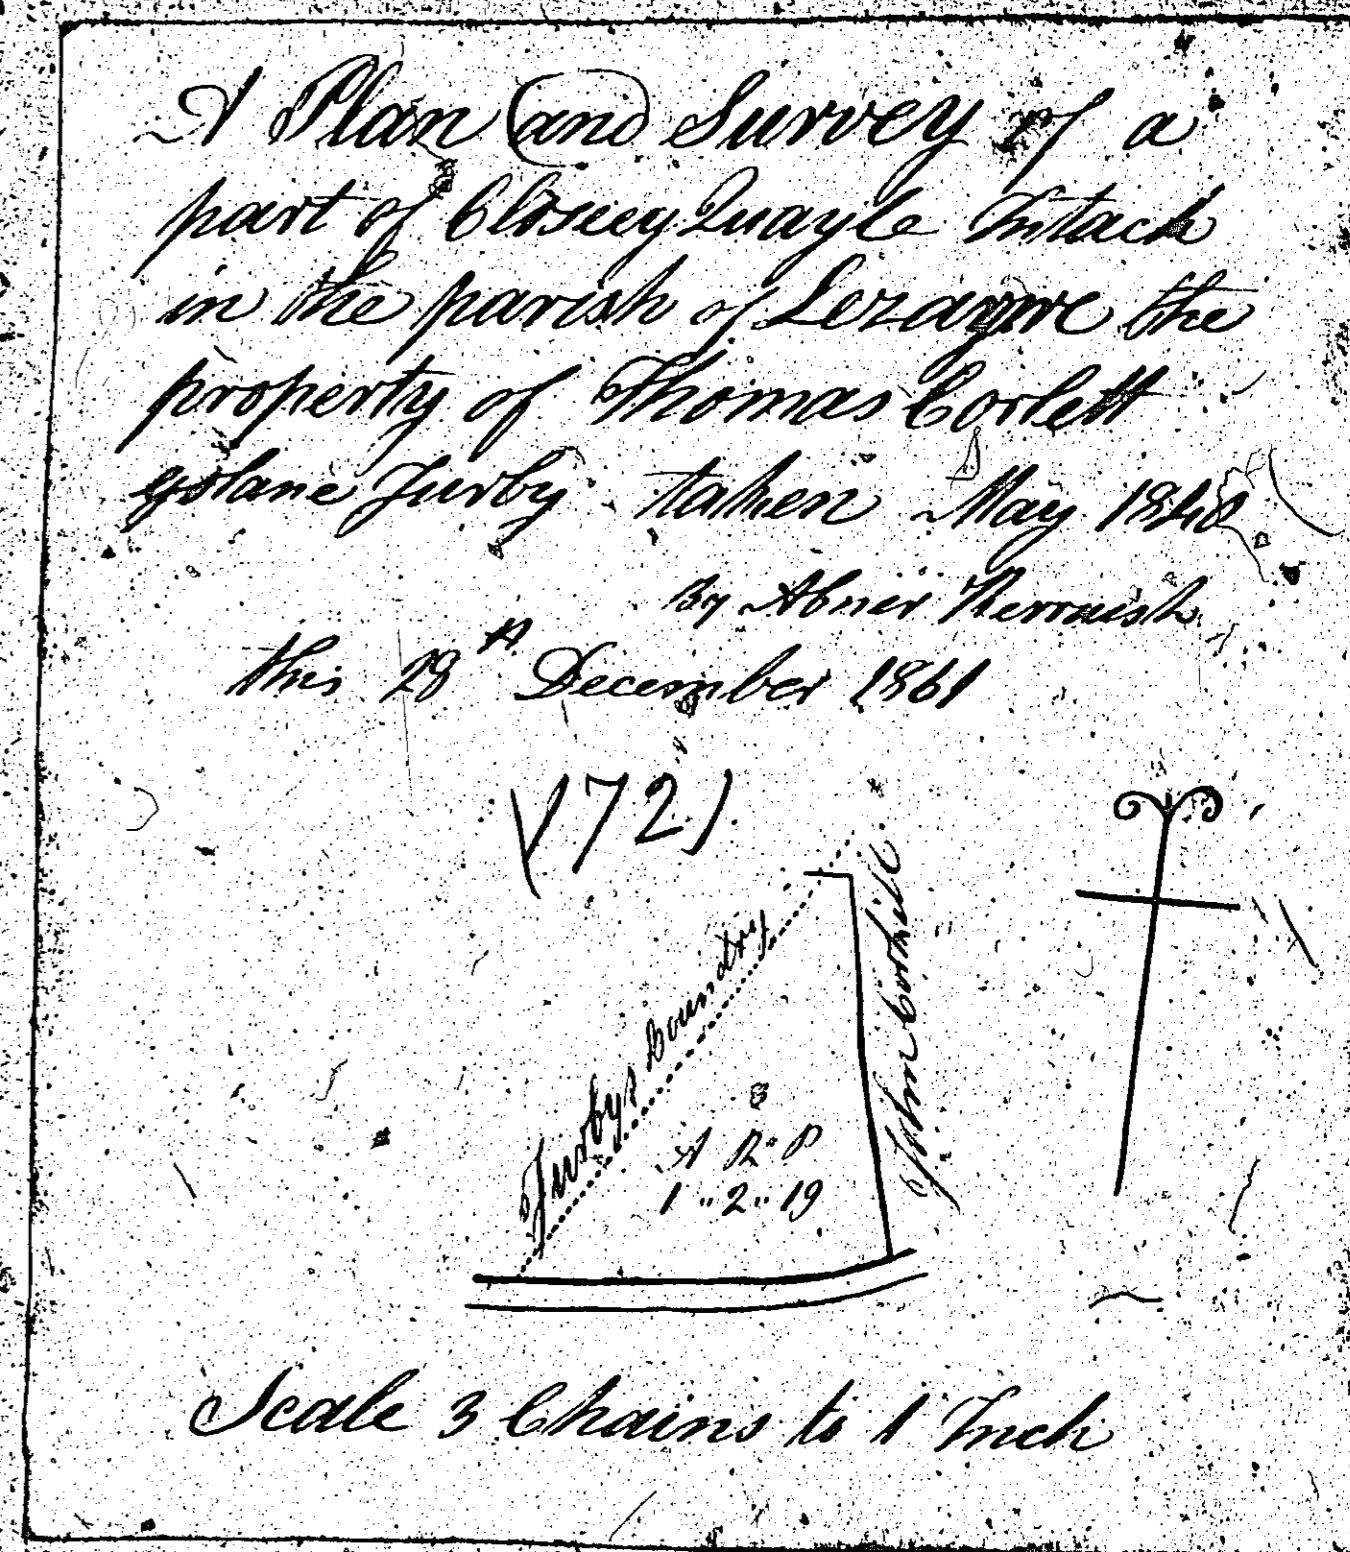 A Plan and Survey of a
part of Closeey Quayle Intack
in the parish of Lezayre the
property of Thomas Corlett
Jurby taken May 1848
By Abner Kerruish
this 28th December 1861
(172)
Jurbys boundry
John Corkill
A R P
1 " 2 " 19
Scale 3 Chains to 1 Inch